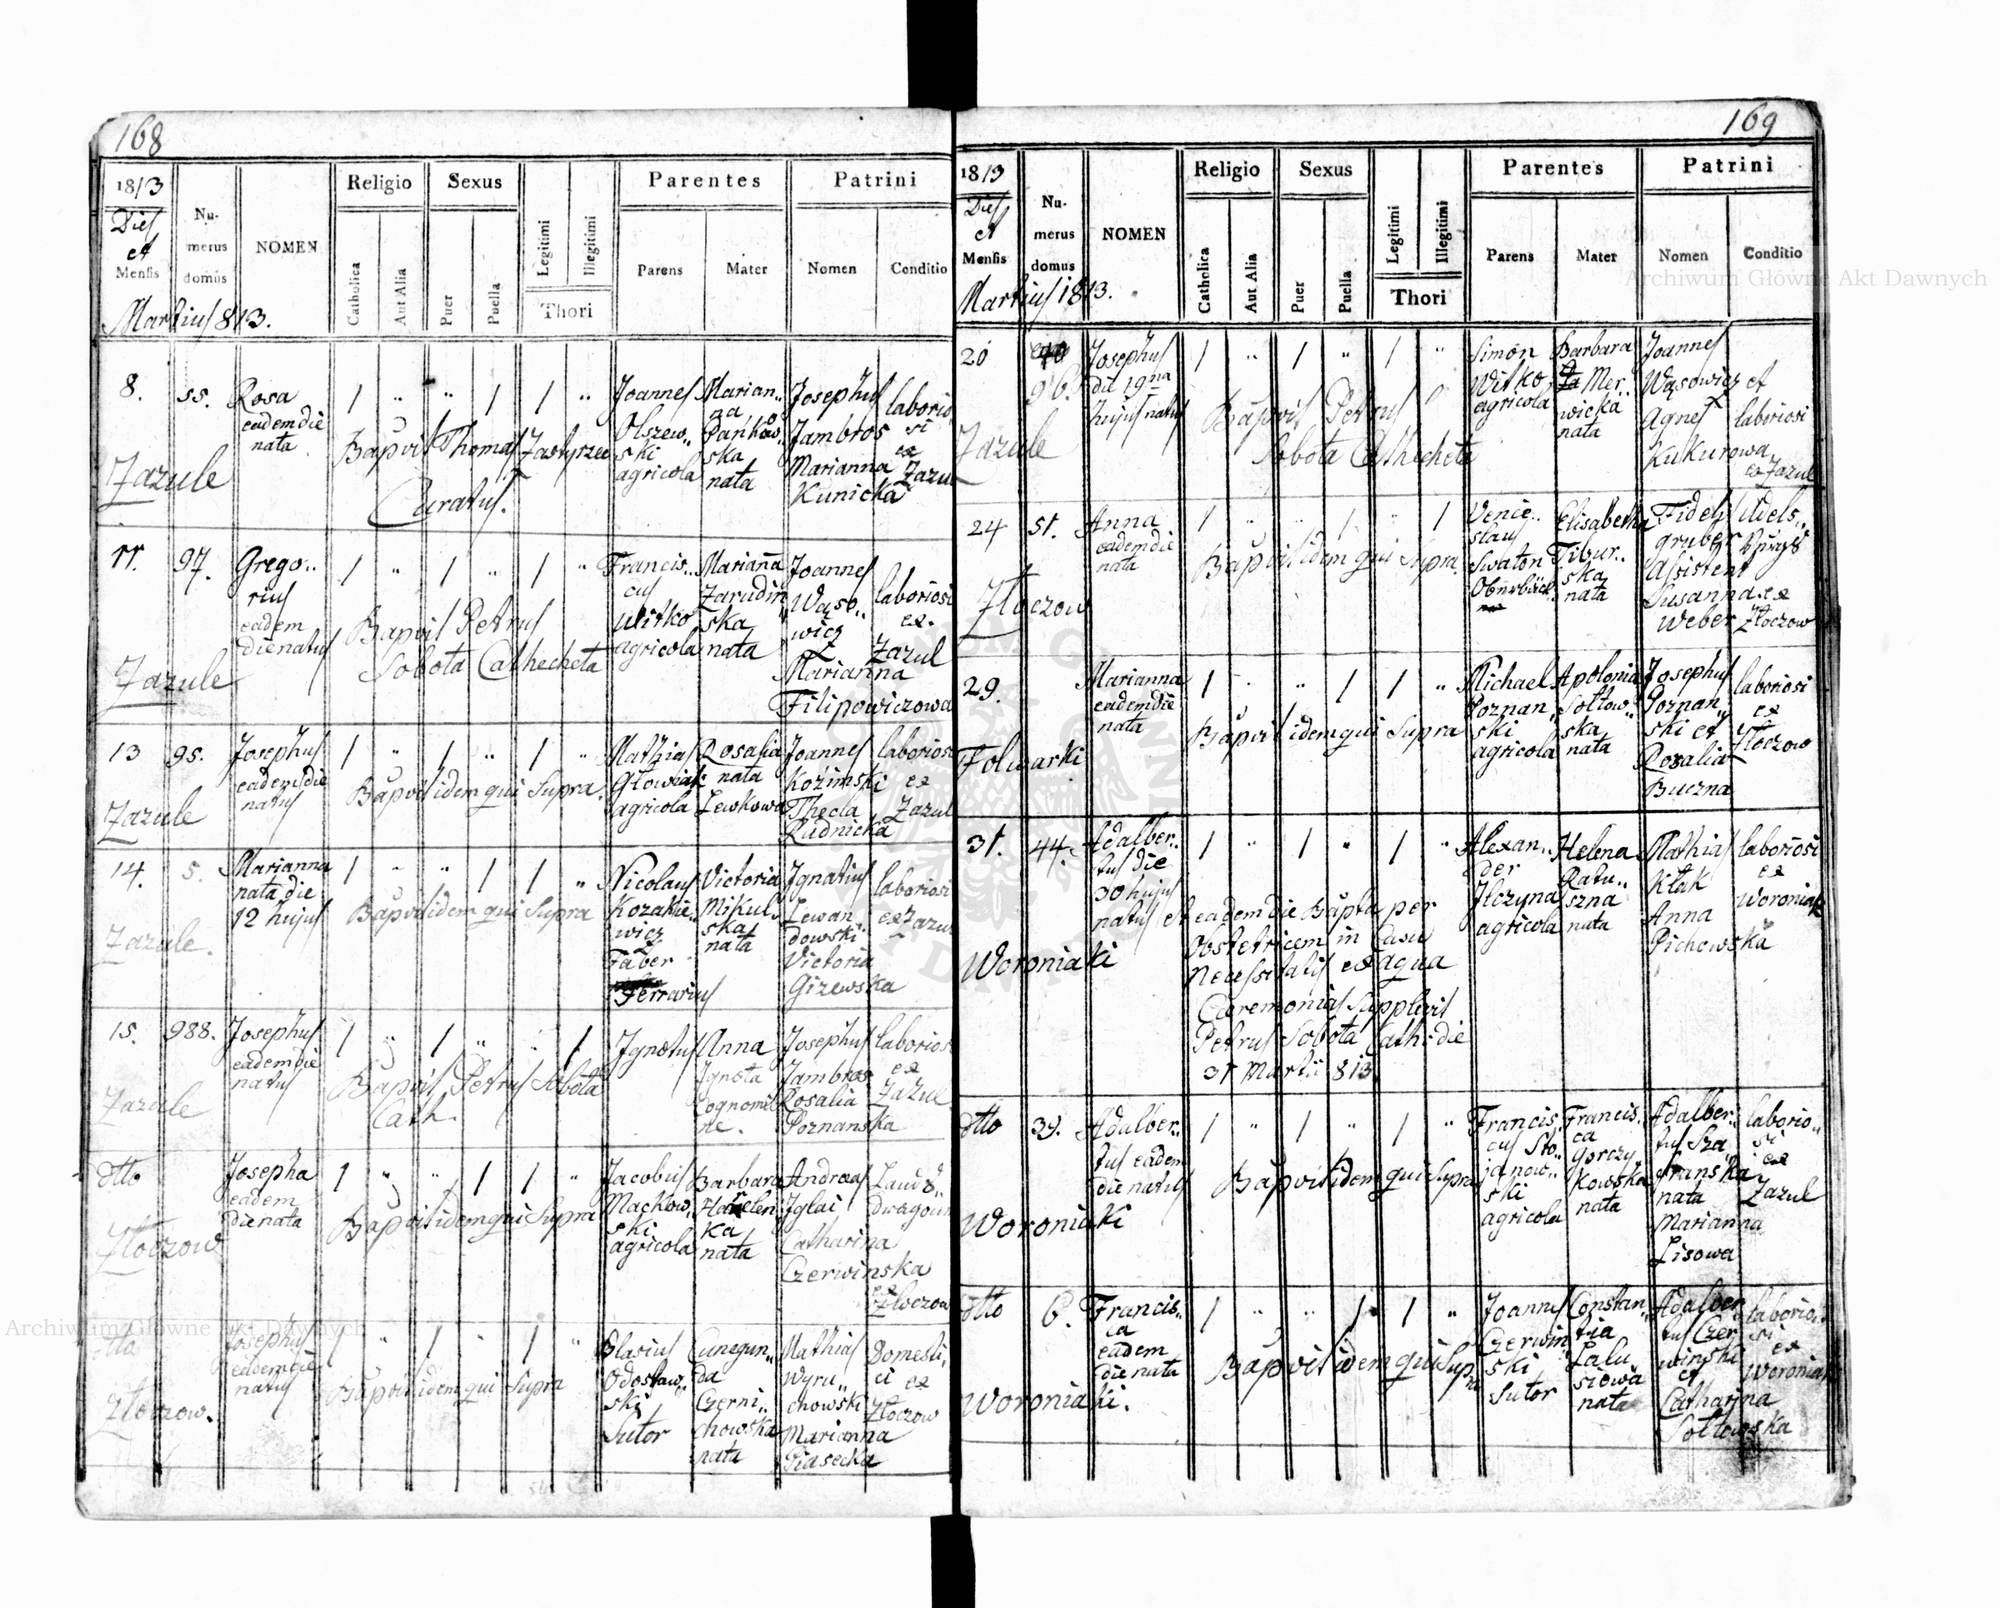 168
1813
Dies
et
Mensis
Numerus
domus
NOMEN
Religio
Catholica
Aut Alia
Sexus
Puer
Puella
Legitimi
Illegitimi
Thori
Parentes
Parens
Mater
Patrini
Nomen
Conditio
Martius 813.
8.
55.
Rosa
eadem die
nata
Zazule
Bapvit Thomas
Curatus.
Joannes
Olszew..
ski
agricola
Marian..
na
Pankow..
ska
nata
Josephus
Jambros
Marianna
Kunicka
laborio
si
ex
Zazul
11.
97.
Grego..
rius
eadem
die natus
Zazule
Bapvit Petrus
Sobota Cathecheta
Francis..
cus
Witko
agricola
Marianna
Zarudin
ska
nata
Joannes
Wąso..
wicz
et
Marianna
Filipowiczowa
laboriosi
ex
Zazul
13
95.
Josephus
eadem die
natus
Zazule
Bapvit idem qui Supra.
Mathias
Głowiak
agricola
Rosalia
nata
Lewkowa
Joannes
Kozimski
Thecla
Rudnicka
laboriosi
ex
Zazul
14.
5.
Marianna
nata die
12 hujus
Zazule.
Bapvit idem qui Supra
Nicolaus
Kozakie..
wicz
Faber
Ferrarius
Victoria
Mikul..
ska
nata
Ignatius
Lewan..
dowski
Victoria
Gizewska
laboriosi
ex Zazul
15.
988.
Josephus
eadem die
natus
Zazule
Bapvit Petrus Sobota
Cath.
Ignotus
Anna
Ignota
Cognomi
ne.
Josephus
Jambros
Rosalia
Poznanska
laboriosi
ex
Zazul
dtto
Josepha
eadem
die nata
Złoczow
Bapvit idem qui Supra
Jacobus
Mackow..
ski
agricola
Barbara
ka
nata
Andreas
Iglai
Catharina
Czerwinska
dragoun
ex
Złoczow
dtto
Josephus
eadem die
natus
Złoczow.
Bapvit idem qui Supra
Blasius
Odostaw..
ski
Sutor
Cunegun..
da
Czerni..
chowska
nata
Mathias
Wyru..
chowski
Marianna
Piasecka
Domesti..
ci ex
Złoczow
169
1813
Dies
et
Mensis
Numerus
domus
NOMEN
Religio
Catholica
Aut Alia
Sexus
Puer
Puella
Legitimi
Illegitimi
Thori
Parentes
Parens
Mater
Patrini
Nomen
Conditio
Martius 1813.
20
96.
Josephus
die 19na
hujus natus
Zazule
Bapvit Petrus
Sobota Cathecheta
Simon
Witko
agricola
Barbara
Mer..
wicka
nata
Joannes
Wąsowicz et
Agnes
Kukurowa
laboriosi
ex Zazul
24
51.
Anna
eadem die
nata
Złoczow
Bapvit idem qui Supra.
Vence..
slaus
Swaton
Elisabetha
Tibur..
ska
nata
Fidelis
gruber
Assistent
Susanna
Weber
ex
Złoczow
29.
Marianna
eadem die
nata
Folwarki
Bapvit idem qui Supra
Michael
Poznan..
ski
agricola
Apolonia
Soltow..
ska
nata
Josephus
Poznan..
ski et
Rosalia
Buczna
laboriosi
ex
Złoczow
31.
44.
Adalber..
tus die
30 hujus
natus et eadem die Bapta per
Obstetricem in Casu
Necessitatis ex aqua
Caeremonias Supplevit
Petrus Sobota Cath: die
31 Martii 813.
Woroniaki
Alexan..
der
Ilczyna
agricola
Helena
Ratu..
szna
nata
Mathias
Kłak
Anna
Pichowska
laboriosi
ex
Woroniak
dtto
39.
Adalber..
tus eadem
die natus
Woroniaki
Bapvit idem qui Supra
Francis..
cus Sto..
janow..
ski
agricola
Francis..
ca
Gorczy..
kowska
nata
Adalber..
tus Sza..
franska
nata
Marianna
Lisowa
laborio..
si
ex
Zazul
dtto
6.
Francis..
ca
eadem
die nata
Woroniaki.
Bapvit idem qui Supra
Joannes
Czerwin
ski
Sutor
Constan..
tia
Lalu..
siowa
nata
Adalber
tus Czer
winski
et
Catharina
Sołtowska
laborio..
si
ex
Woroniak
Archiwum Główne Akt Dawnych
Archiwum Główne Akt Dawnych